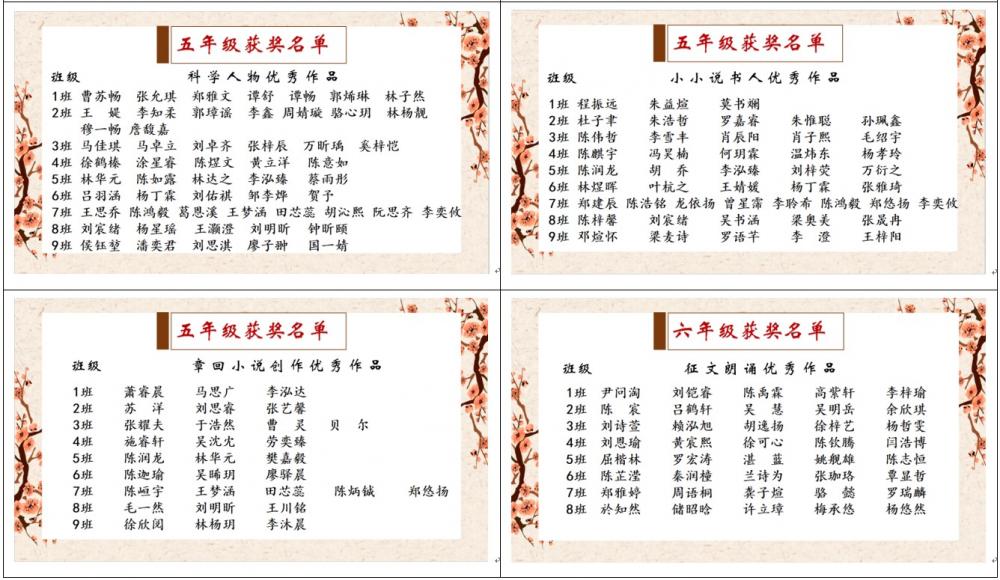 五年级获奖名单
班级 科学人物优秀作品
1班 曹苏畅 张允琪 郑雅文 谭舒 谭畅 郭烯琳 林子然
2班 王媞 李知柔 郭璋谣 李鑫 周婧璇 骆心玥 林杨靓
穆一畅 詹馥嘉
3班 马佳琪 马卓立 刘卓齐 张梓辰 万昕瑀 奚梓恺
4班 徐鹤榛 涂星睿 陈煜文 黄立洋 陈意如
5班 林华元 陈如露 林达之 李泓臻 蔡雨彤
6班 吕羽涵 杨丁霖 刘佑祺 邹李烨 贺予
7班 王思乔 陈鸿毅 葛恩溪 王梦涵 田芯蕊 胡沁熙 阮思齐 李奕攸
8班 刘宸绪 杨星瑶 王灏澄 刘明昕 钟昕颐
9班 侯钰堃 潘奕君 刘思淇 廖子翀 国一婧
五年级获奖名单
班级 小小说书人优秀作品
1班 程振远 朱益煊 莫书斓
2班 杜子聿 朱浩哲 罗嘉睿 朱惟聪 孙珮鑫
3班 陈伟哲 李雪丰 肖辰阳 肖子熙 毛绍宇
4班 陈麒宇 冯昊楠 何玥霖 温炜东 杨孝玲
5班 陈润龙 胡乔 李泓臻 刘梓荧 万衍之
6班 林煜晖 叶杭之 王婧媛 杨丁霖 张雅琦
7班 郑建辰 陈浩铭 龙依扬 曾星霈 李聆希 陈鸿毅 郑悠扬 李奕攸
8班 陈梓馨 刘宸绪 吴书涵 梁奥美 张晟冉
9班 邓煊怀 梁麦诗 罗语芊 李澄 王梓阳
五年级获奖名单
班级 章回小说创作优秀作品
1班 萧睿晨 马思广 李泓达
2班 苏洋 刘思睿 张艺馨
3班 张耀夫 于浩然 曹灵 贝尔
4班 施睿轩 吴沈尤 劳奕臻
5班 陈润龙 林华元 樊嘉毅
6班 陈迦瑜 吴晞玥 廖驿晨
7班 陈峘宇 王梦涵 田芯蕊 陈炳铖 郑悠扬
8班 毛一然 刘明昕 王川铭
9班 徐欣阅 林杨玥 李沐晨
六年级获奖名单
班级 征文朗诵优秀作品
1班 尹问淘 刘铠睿 陈禹霖 高紫轩 李梓瑜
2班 陈宸 吕鹤轩 吴慧 吴明岳 余欣琪
3班 刘诗萱 赖泓旭 胡逸扬 徐梓艺 杨哲雯
4班 刘恩瑜 黄宸熙 徐可心 陈钦腾 闫浩博
5班 屈楷林 罗宏涛 湛蓝 姚觐雄 陈志恒
6班 陈芷滢 秦润橦 兰诗为 张珈珞 覃显哲
7班 郑雅婷 周语桐 龚子煊 骆懿 罗瑞麟
8班 於知然 储昭晗 许立璋 梅承悠 杨悠然